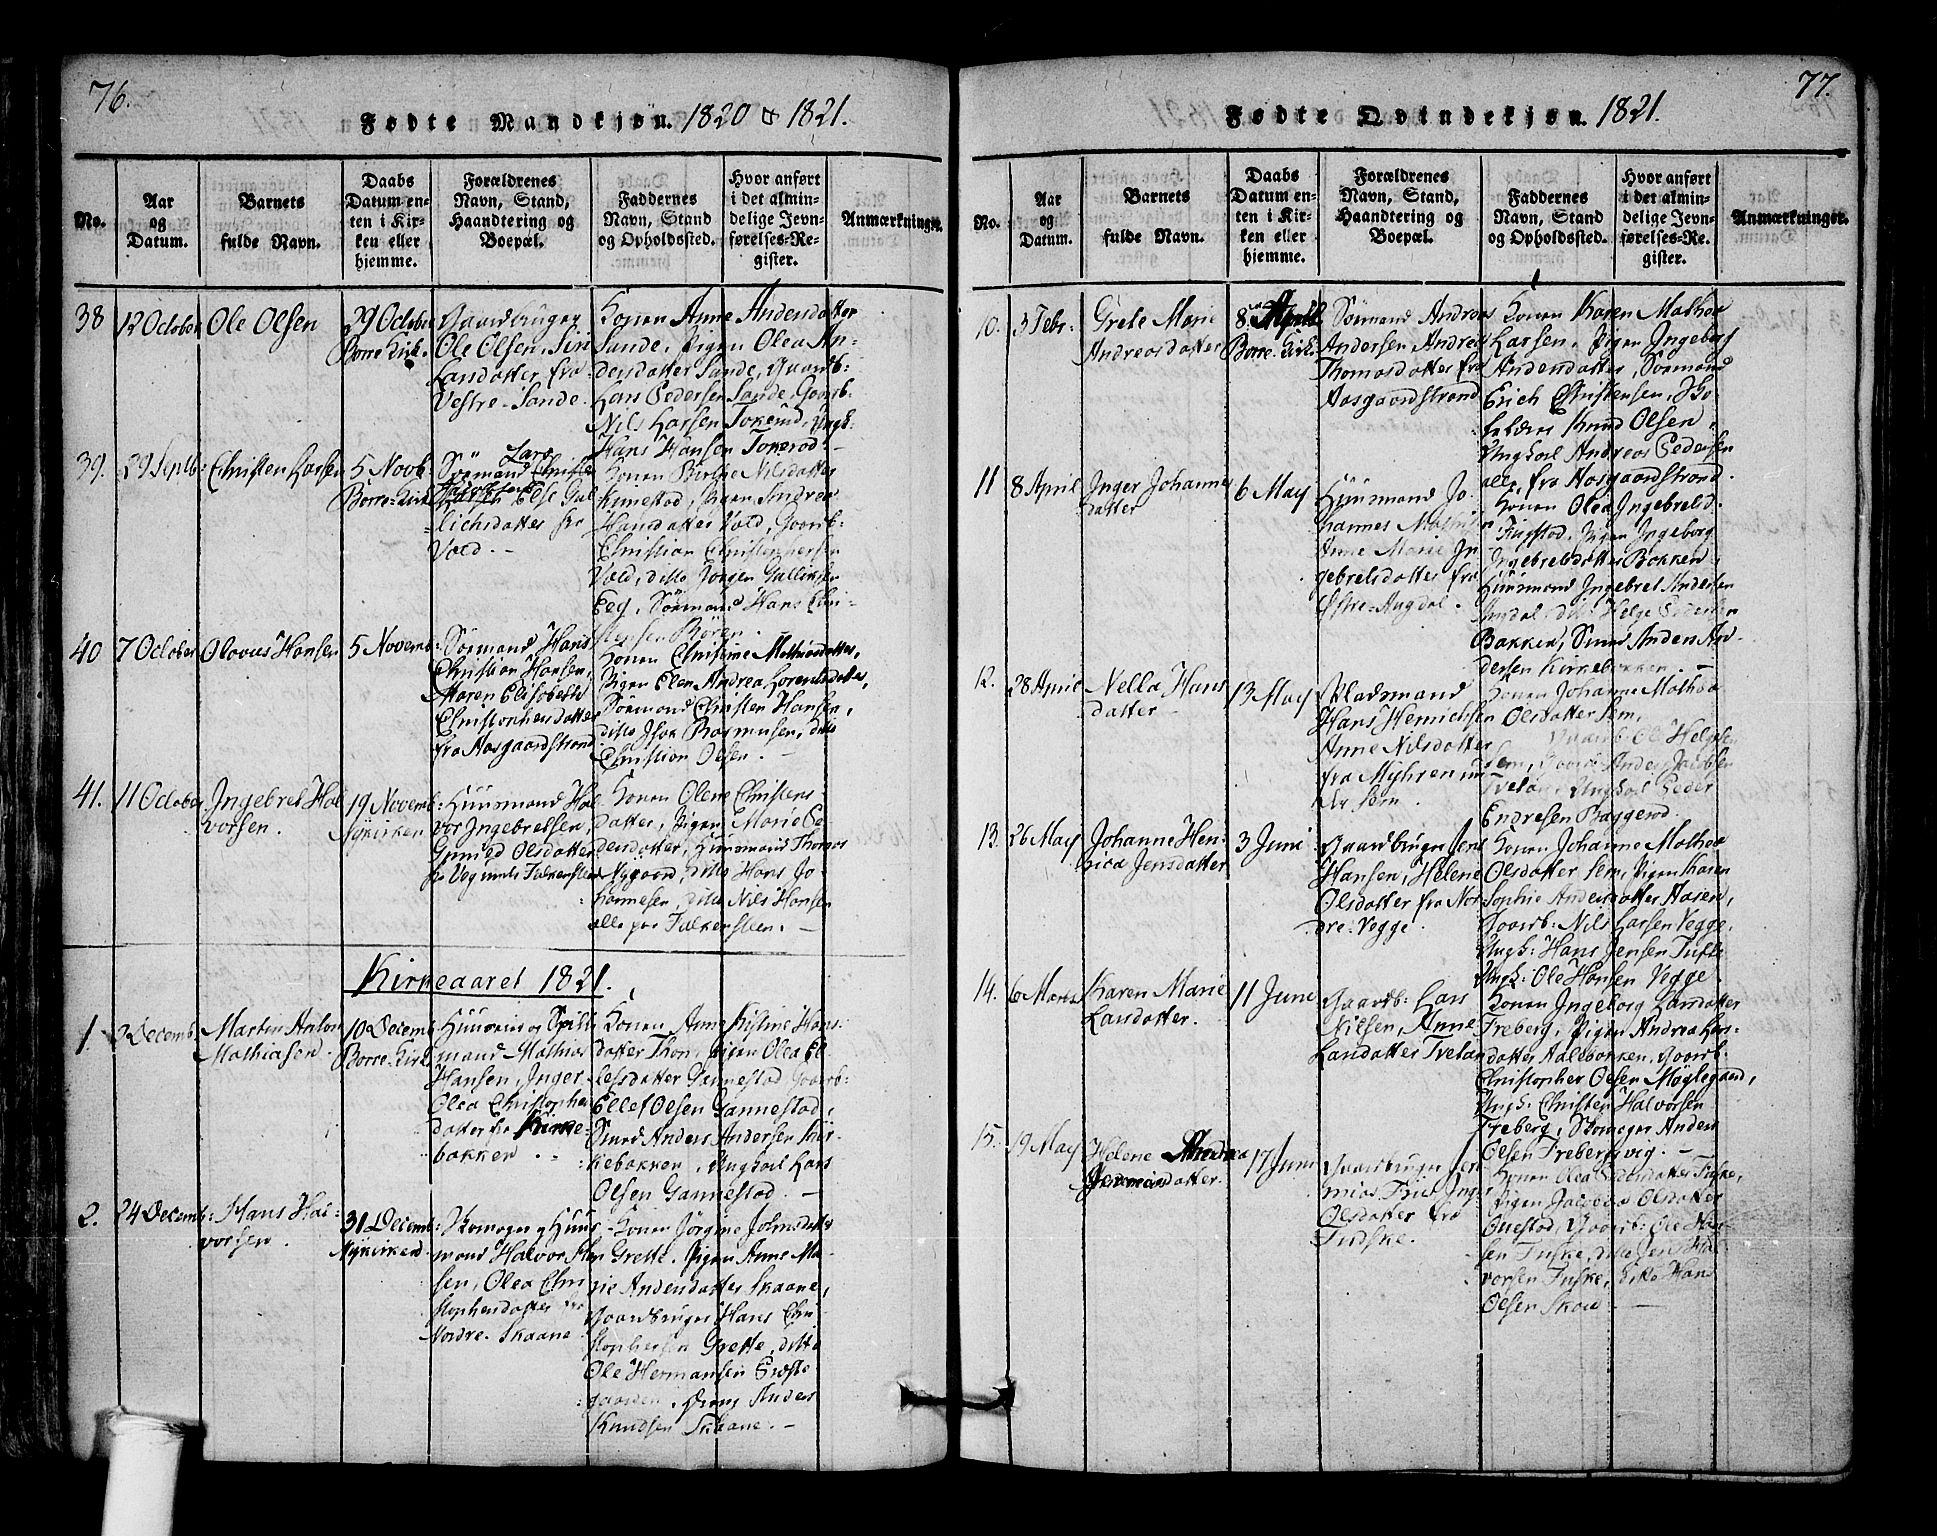 76.
Fødte Mandkjøn. 1820 & 1821.
No.
Aar
og
Datum.
Barnets
fulde Navn.
Daabs
Datum en-
ten i Kir-
ken eller
hjemme.
Forældrenes
Navn, Stand,
Haandtering og
Boepæl.
Faddernes
Navn, Stand
og Opholdssted.
Hvor anført
i det almin-
delige Jevn-
førelses-Re-
gister.
Anmærkninger.
38
12 October
Ole Olsen
29 October
Borre-Kirk.
Gaardbruger
Ole Olsen, Siri
Larsdatter fra
Vestre-Sande.
Konen Anne Andersdatter
Sande, Pigen Olea An-
dersdatter Sande, Gaardb:
Lars Pedersen Sande, Gaarb-
Nils Larsen Tokerud, Ungk.
Hans Hansen Tokerod -
39.
29 Septb:
Christen Larsen
5 Novb:
Borre-Kirk
Lars
Sørmand
Else Gul-
lichsdatter fra
Vold. -
Konen Birthe Nilsdatter
Kinnestad, Pigen Andrea
Hansdatter Vold, Gaarb-
Christian Christophersen
Vold, ditto Jørgen Gulliksen
Eeg, Sørmand Hans Chri-
stensen Børen.
40
7 October
Olavus Hansen
5 Novemb:
Sørmand Hans
Christian Hansen,
Maren Elisabeth
Christophersdatter
fra Aasgaardstrand
Konen Christine Mathisdatter,
Pigen Elen Andrea Lorentsdatter,
Sørmand Christen Hansen,
ditto Isak Rasmusen, ditto
Christian Olsen. -
41.
11 October
Ingebret Hal
vorsen.
19 Novemb:
Nykirken
Huusmand Hal
vor Ingebretsen,
Gunild Olsdatter
fra Veg under Falkensteen
Konen Olene Christens-
datter, Pigen Marie Pe
dersdatter, Huusmand Thomas
Nygaard, ditto Hans Jo-
hannesen, ditto Nils Hansen
alle paa Falkensteen. -
Kirkeaaret 1821.
1.
3 Decemb.
Marten Anton
Mathiasen.
10 Decemb.
Borre-Kirk
Huusmand og Spille-
mand Mathias
Hansen, Inger
Olea Christopher-
datter fra Kirke-
bakken.
Konen Anne Kistine Hans-
datter Thon, Pigen Olea El-
lefsdatter Gannestad, Gaarb-
Ellef Olsen Gannestad,
Smed Anders Andersen Kir-
kebakken, Ungkarl Lars
Olsen Gannestad. -
2.
24 Decemb:
Hans Hal-
vorsen
31 Decemb:
Nykirken
Skomager og Huus
mand Halvor Han
sen, Olea Chri
stophersdatter fra
Nordre-Skaane
Konen Jørgine Johnsdatter
Grette, Pigen Anne Ma-
rie Andersdatter Skaane,
Gaardbruger Hans Chri
stophersen Grette, ditto
Ole Hermansen Præste
gaarden, Dreng Anders
Knudsen Skaane. -
77.
Fødte Qvindekjøn. 1821.
No.
Aar
og
Datum.
Barnets
fulde Navn.
Daabs
Datum en-
ten i Kir-
ken eller
hjemme.
Forældrenes
Navn, Stand,
Haandtering og
Boepæl.
Faddernes
Navn, Stand
og Opholdssted.
Hvor anført
i det almin-
delige Jevn-
førelses-Re-
gister.
Anmærkninger.
10.
3 Febr:
Grete Marie
Andreasdatter
8 April
Borre-Kirk:
Sørmand Andreas
Andersen, Andrea
Thomasdatter fra
Aasgaardstrand
Konen Karen Mathea
Larsen, Pigen Ingeborg
Andersdatter, Sørmand
Erich Christensen,
Knud Olsen,
Ungkarl Andreas Pedersen
alle fra Aasgaardstrand.
11
8 April
Inger Johannes
datter
6 May
Huusmand Jo-
hannes Mathis
Anne Marie In
gebretsdatter fra
Østre-Augdal.
Konen Olea Ingebretsd.
Pigen Ingeborg
Ingebretsdatter Bakken,
Huusmand Ingebret Andersen
Augdal, ditto Helge Pedersen
Bakken, Smed Anders An-
dersen Kirkebakken. -
12.
28 April
Nella Hans
datter
13 May
Pladsmand
Hans Henrichsen
Anne Nilsdatter
fra Myhren un
der Sem.
Konen Johanne Mathea
Olsdatter Sem,
Gaarb: Ole Helgesen
Sem, Gaarb: Anders Jacobsen
Tveian, Ungkarl Peder
Endresen Baggerød.
13.
26 May
Johanne Hen-
rica Jensdatter
3 Juni
Gaardbruger Jens
Hansen, Helene
Olsdatter fra Nor
dre-Vegge.
Konen Johanne Mathea
Olsdatter Sem, Pigen Karen
Sophie Andersdatter Aasen,
Gaarb: Nils Larsen Vegge,
Ungk: Hans Jensen Tufte
Ungk: Ole Hansen Vegge.
14.
6 Marts
Karen Marie
Larsdatter.
11 Juni
Gaardb: Lars
Nilsen, Anne
Larsdatter Tveian
Konen Ingeborg Larsdatter
Freberg, Pigen Andrea Lars-
datter Adalsbakken, Gaarb-
Christopher Olsen Møglegaard,
Ungk: Christen Halvorsen
Freberg, Skomager Anders
Olsen Frebergsvig. -
15.
19 May
Helene Andrea
Jeremiasdatter.
17 Juni
Gaardbruger Jere
mias Inger
Olsdatter fra
Fuske.
Konen Olea Fuske,
Pigen Jacobea Olsdatter
Ollestad, Gaarb: Ole Han-
sen Fuske, ditto Jens Hal
vorsen Fuske, ditto Hans
Olsen Skou -